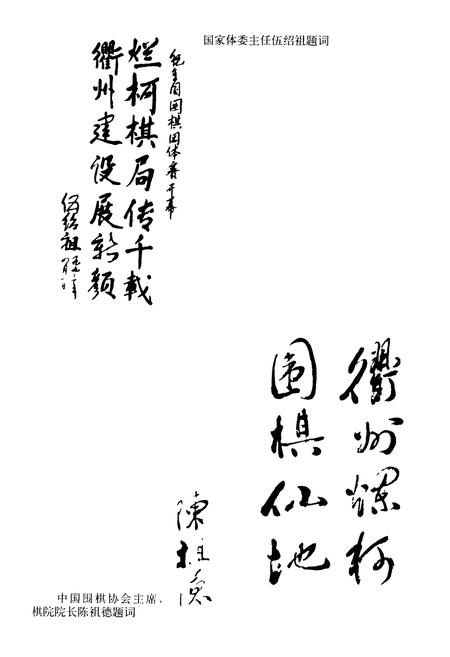 国家体委主任伍绍祖题词
祝全国围棋团体赛开幕
烂柯棋局传千载
衢州建设展新颜
伍绍祖
衢州爛柯
围棋仙地
陳祖德
中国围棋协会主席、
棋院院长陈祖德题词